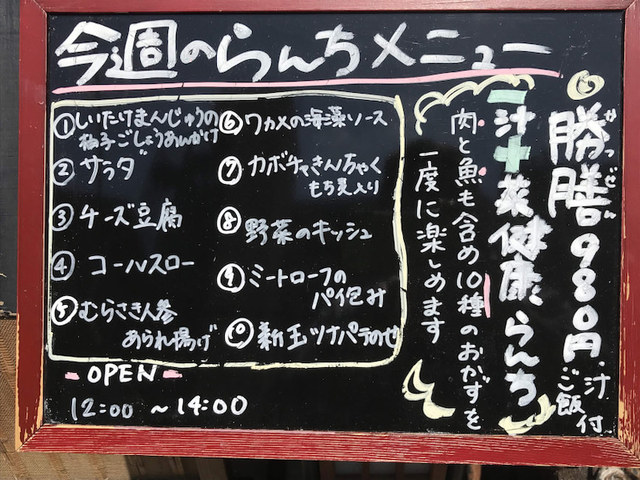 今週のらんちメニュー
①しいたけまんじゅうの
柚子ごしょうあんかけ
②サラダ
③チーズ豆腐
④コールスロー
⑤むらさき人参
あられ揚げ
⑥ワカメの海藻ソース
⑦カボチャきんちゃく
もち見入り
⑧野菜のキッシュ
⑨ミートローフの
パイ包み
⑩新玉ツナパラのせ
OPEN
12:00 ~14:00
勝膳980円
かつぜん
汁
ご飯付
一汁十菜健康らんち
肉と魚も含め10種のおかずを
一度に楽しめます